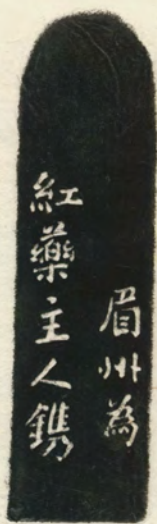 眉州為
紅藥主人鐫